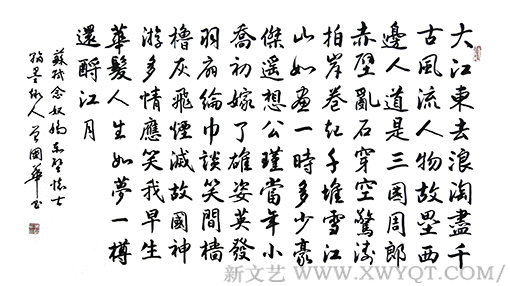 大江東去浪淘盡千
古風流人物故壘西
邊人道是三國周郎
赤壁亂石穿空驚濤
拍岸卷起千堆雪江
山如畫一時多少豪
傑遥想公瑾當年小
喬初嫁了雄姿英發
羽扇綸巾談笑間檣
櫓灰飛煙滅故國神
游多情應笑我早生
華髮人生如夢一樽
還酹江月
蘇軾念奴嬌赤壁懷古
人曾國華書
新文艺 WWW.XWYQT.COM/